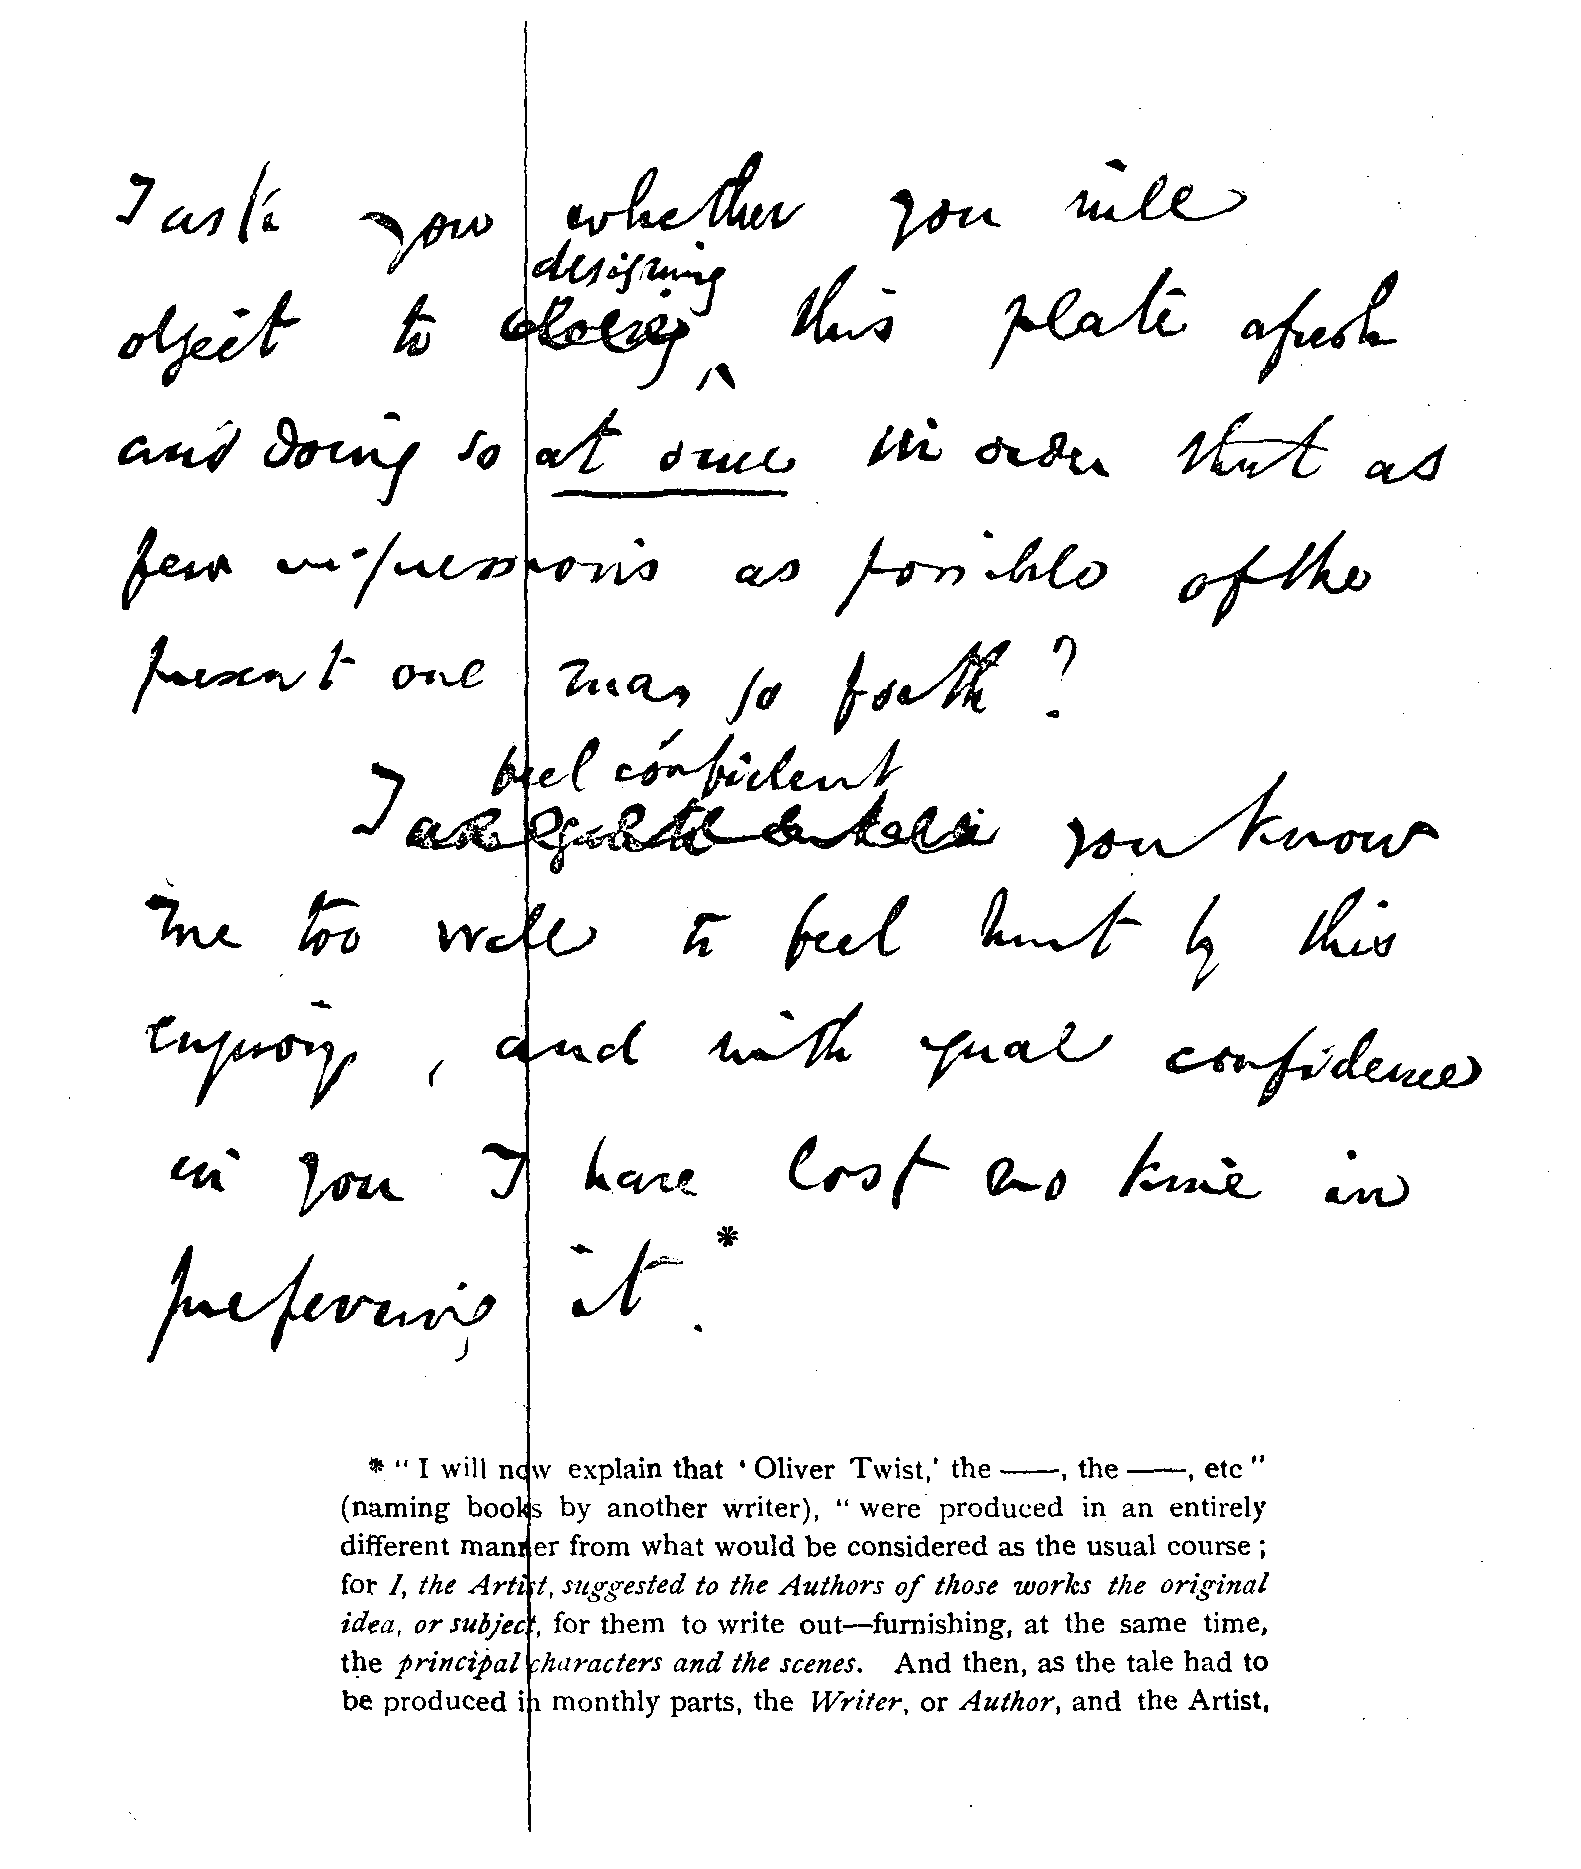 I ask you whether you will
designing
object to doing this plate afresh
and doing so at once in order that as
few impressions as possible of the
present one may go forth?
feel confident
I you know
me too well to feel hurt by this
enquiry, and with equal confidence
in you I have lost no time in
preferring it.*
*“I will now explain that ‘Oliver Twist,’ the ——, the ——, etc”
(naming books by another writer), “were produced in an entirely
different manner from what would be considered as the usual course;
for I, the Artist, suggested to the Authors of those works the original
idea, or subject, for them to write out—furnishing, at the same time,
the principal characters and the scenes. And then, as the tale had to
be produced in monthly parts, the Writer, or Author, and the Artist,